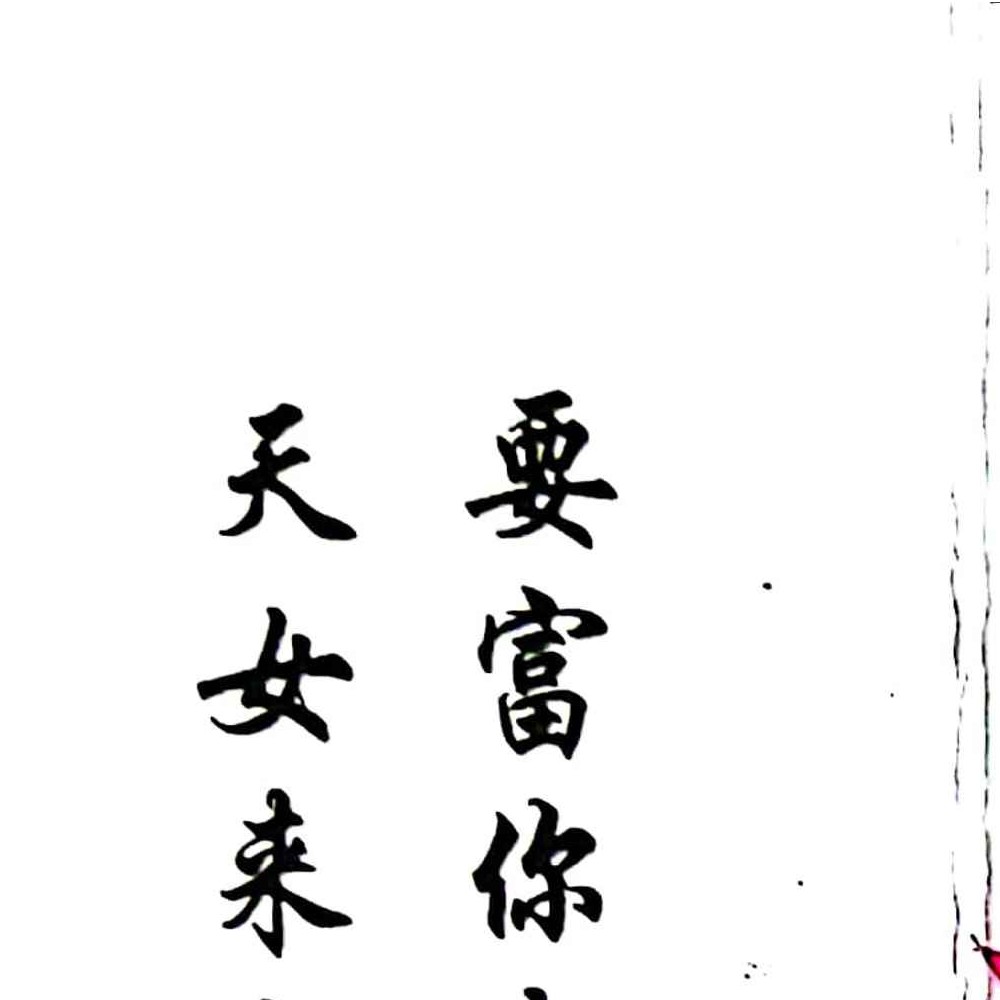 要富你
天女来